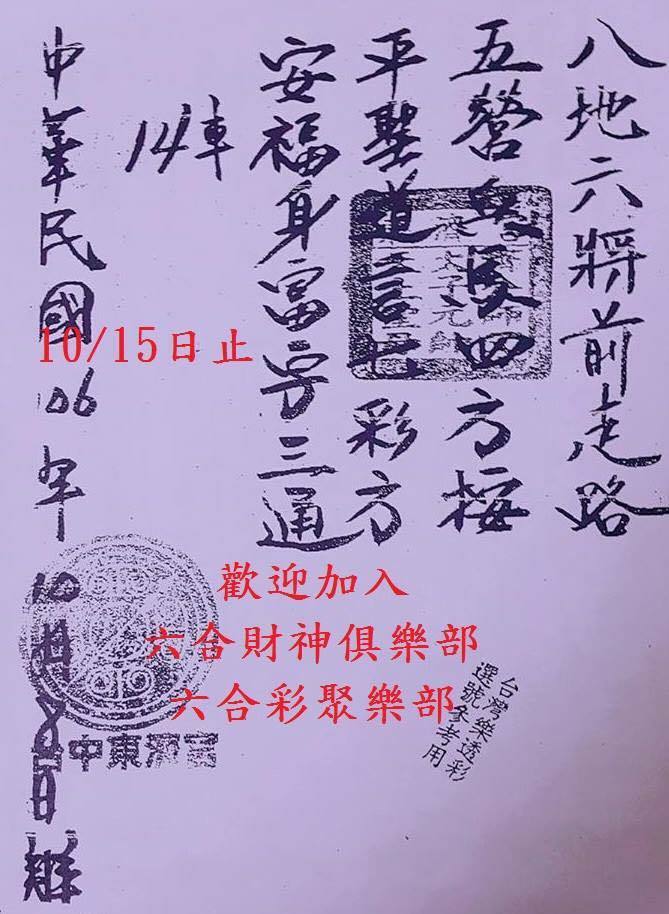 八地六將前走路
五營兵馬四方按
平聖道言七彩方
安福身富字三通
14車
中華民國106年10月8日
10/15日止
歡迎加入
六合財神俱樂部
六合彩聚樂部
台灣樂透彩
選號參考用
台中東瀛宮